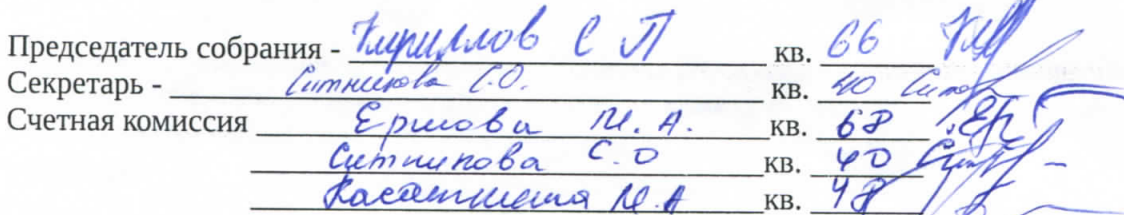 Председатель собрания - Кириллов С П кв. 66
Секретарь - Ситникова С.О. кв. 40
Счетная комиссия Ершова М.А. кв. 68
Ситникова С.О кв. 40
М.А кв. 48